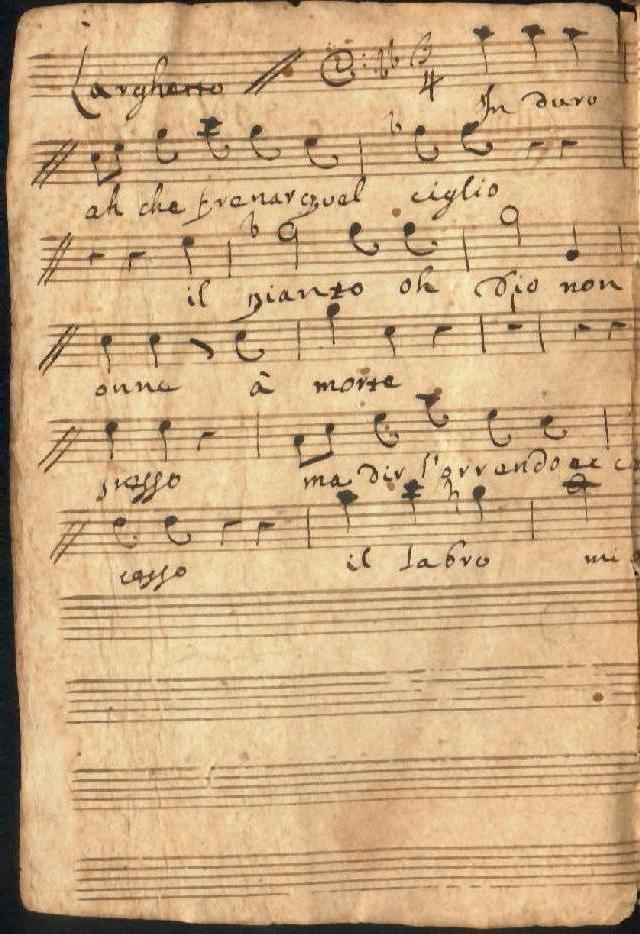 Larghetto
In duro
ah che frenar quel ciglio
il pianto oh Dio non
onne à morte
presso ma dir l'orrendo ec
cesso il labro mi